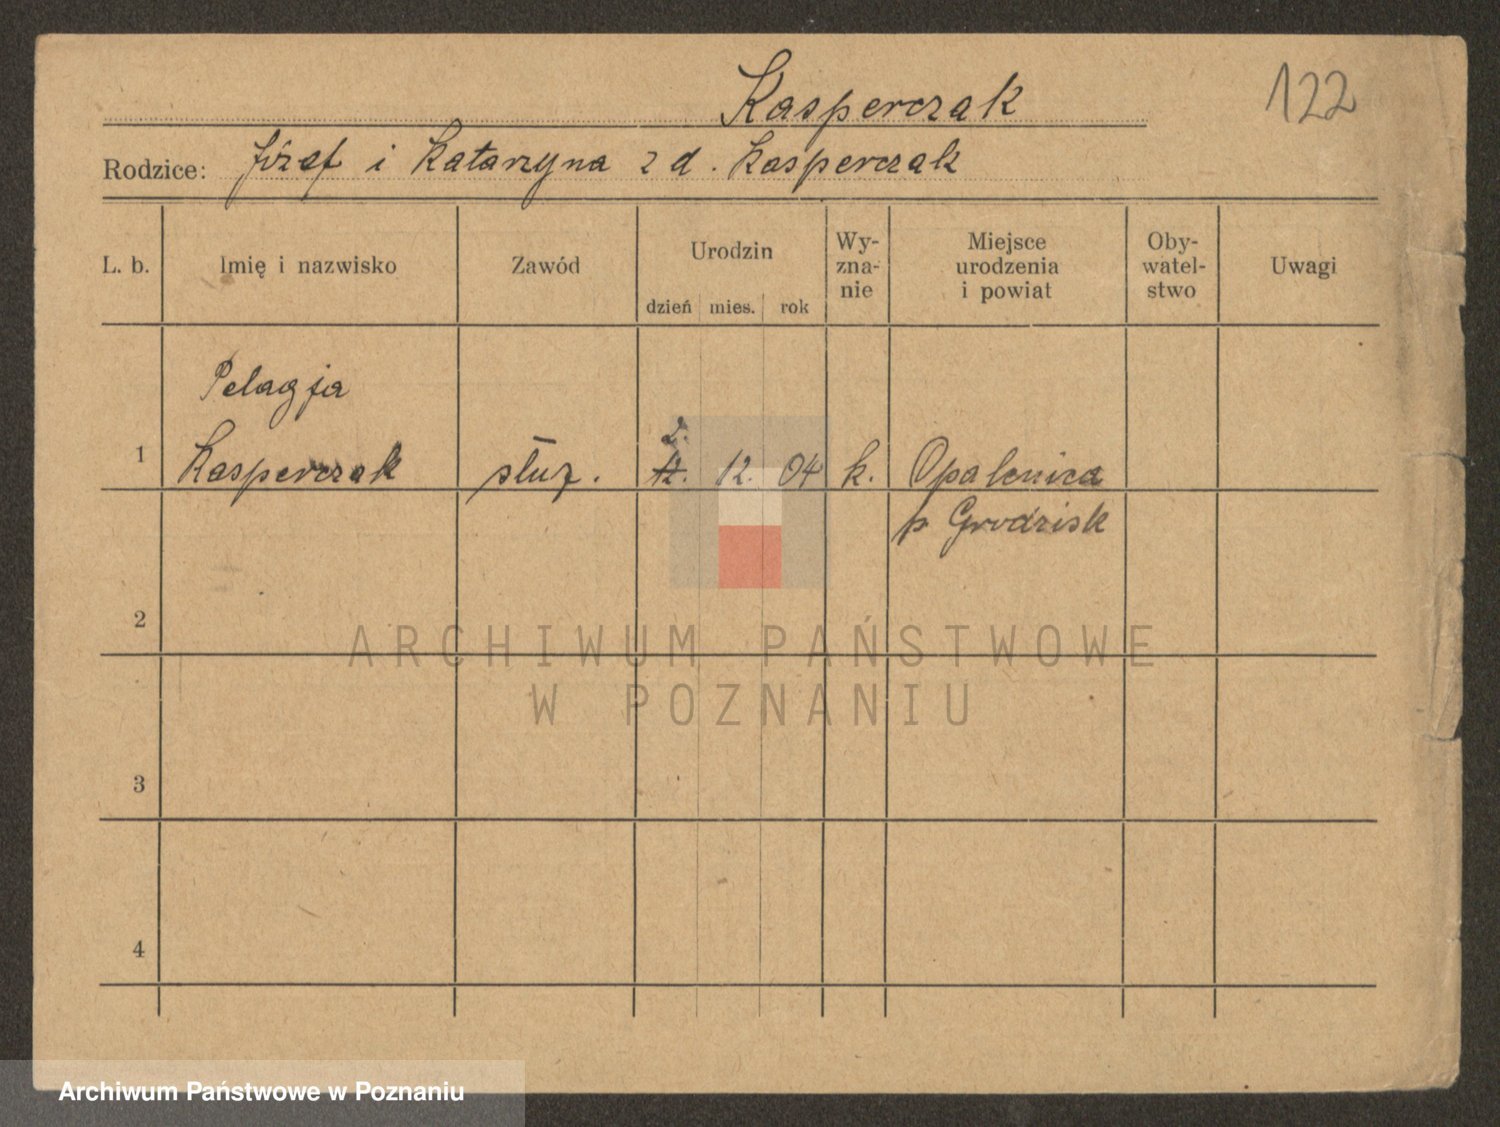 Kasperczak
122
Rodzice: Józef i Katarzyna z d. Kasperczak
L. b. Imię i nazwisko Zawód Urodzin dzień mies. rok Wy-zna-nie Miejsce urodzenia i powiat Oby-watel-stwo Uwagi
Pelagja
2.
1 Kasperczak służ. 12. 12. 04 k. Opalenica
p Grodzisk
2
ARCHIWUM PAŃSTWOWE
W POZNANIU
3
4
Archiwum Państwowe w Poznaniu